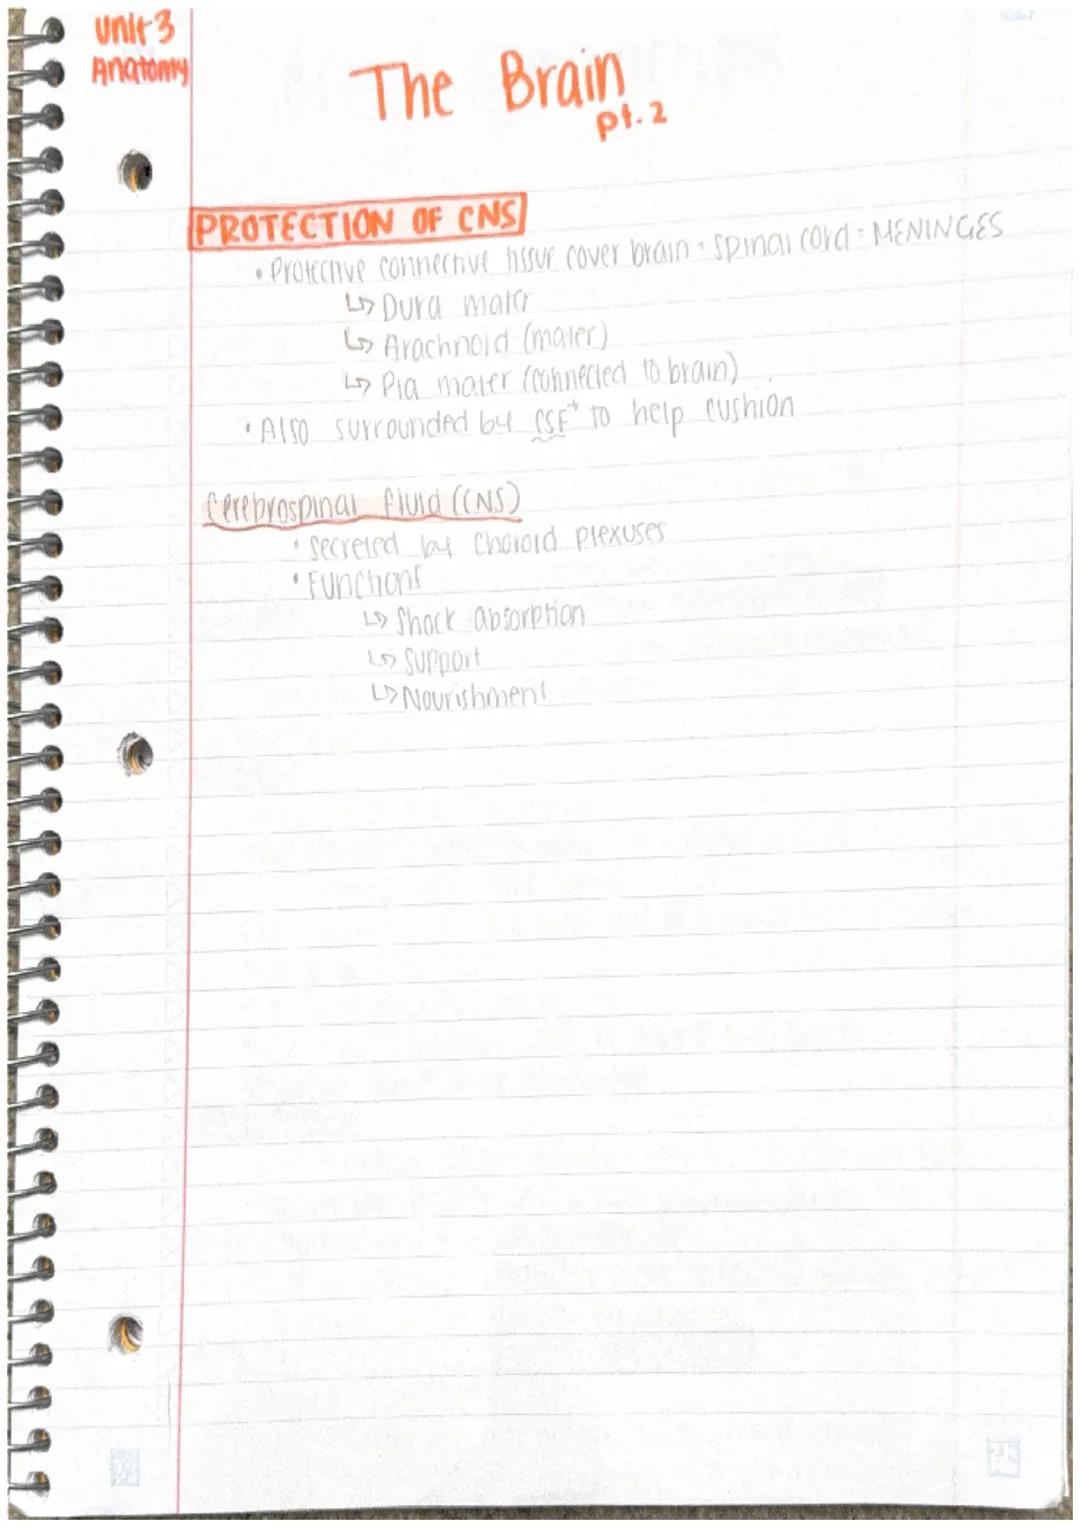 Unit 3
Anatomy
The Brain
pt. 2
PROTECTION OF CNS
• Protective connective tissue cover brain + spinal cord = MENINGES
↳ Dura mater
↳ Arachnoid (mater)
↳ Pia mater (connected to brain)
• Also surrounded by CSF* to help cushion
Cerebrospinal fluid (CNS)
• Secreted by Choroid plexuses
• Functions
↳ Shock absorption
↳ Support
↳ Nourishment